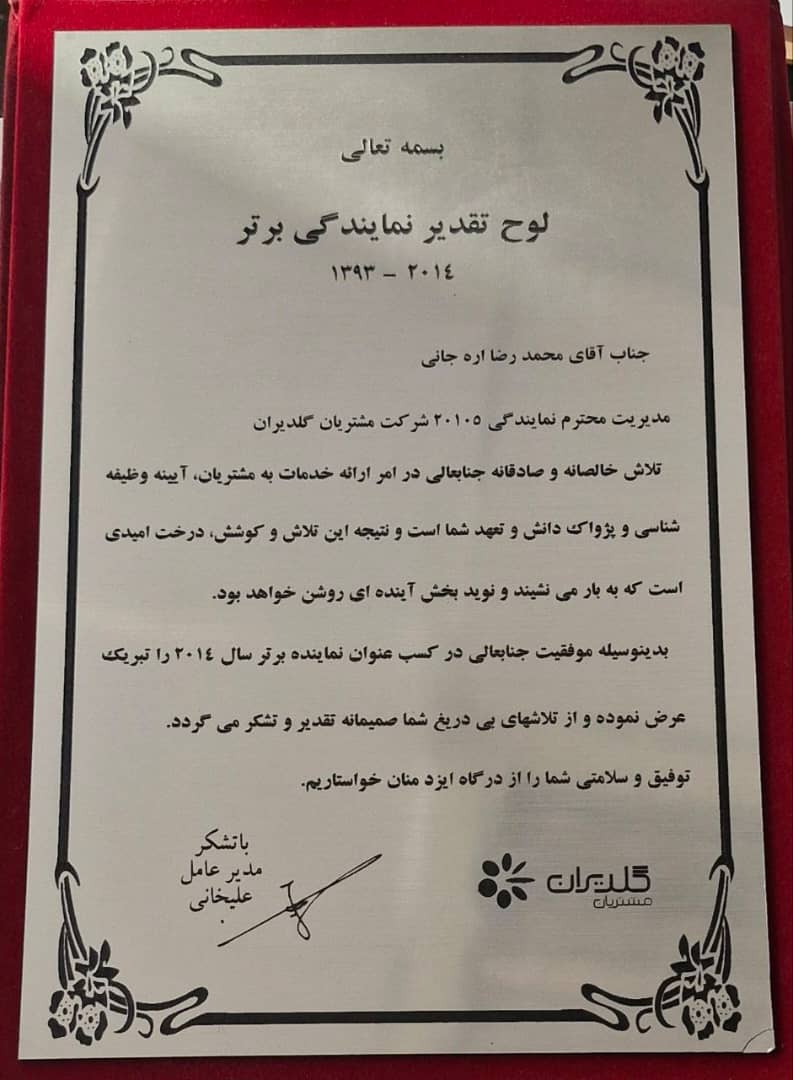 بسمه تعالی
لوح تقدیر نمایندگی برتر
۱۳۹۳ - ۲۰۱٤
جناب آقای محمد رضا اره جانی
مدیریت محترم نمایندگی ۲۰۱۰۵ شرکت مشتریان گلدیران
تلاش خالصانه و صادقانه جنابعالی در امر ارائه خدمات به مشتریان، آیینه وظیفه
شناسی و پژواک دانش و تعهد شما است و نتیجه این تلاش و کوشش، درخت امیدی
است که به بار می نشیند و نوید بخش آینده ای روشن خواهد بود.
بدینوسیله موفقیت جنابعالی در کسب عنوان نماینده برتر سال ۲۰۱٤ را تبریک
عرض نموده و از تلاشهای بی دریغ شما صمیمانه تقدیر و تشکر می گردد.
توفیق و سلامتی شما را از درگاه ایزد منان خواستاریم.
باتشکر
مدیر عامل
علیخانی
گلدیران
مشتریان